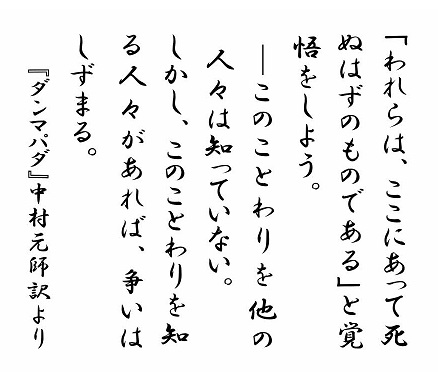 「われらは、ここにあって死
ぬはずのものである」と覚
悟をしよう。
―このことわりを他の
人々は知っていない。
しかし、このことわりを知
る人々があれば、争いは
しずまる。
『ダンマパダ』中村元師訳より